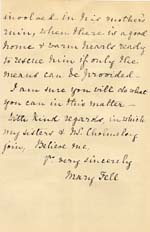 involved in his mother's
ruin, when there is a good
home & warm hearts ready
to rescue him if only the
means can be provided –
I am sure you will do what
you can in this matter –
With kind regards, in which
my sisters & Mr. Cholmeley
join, Believe me,
Yr very sincerely
Mary Fell